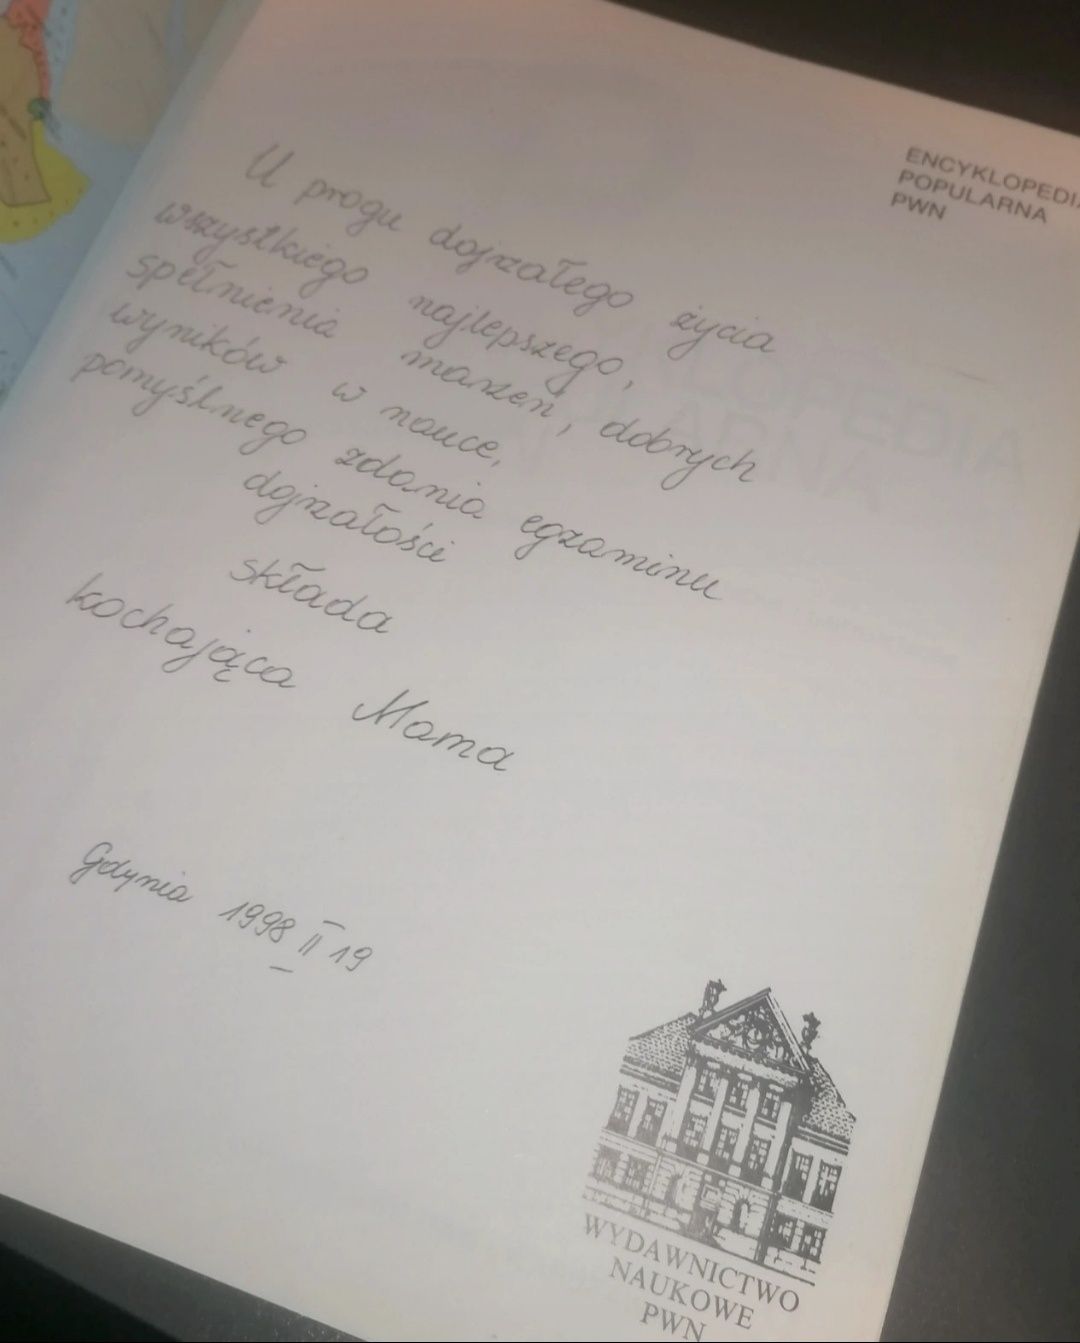 ENCYKLOPEDIA
POPULARNA
PWN
U progu dojrzałego życia
wszystkiego najlepszego,
spełnienia marzeń, dobrych
wyników w nauce,
pomyślnego zdania egzaminu
dojrzałości
składa
kochająca Mama
Gdynia 1998 II 19
WYDAWNICTWO
NAUKOWE
PWN